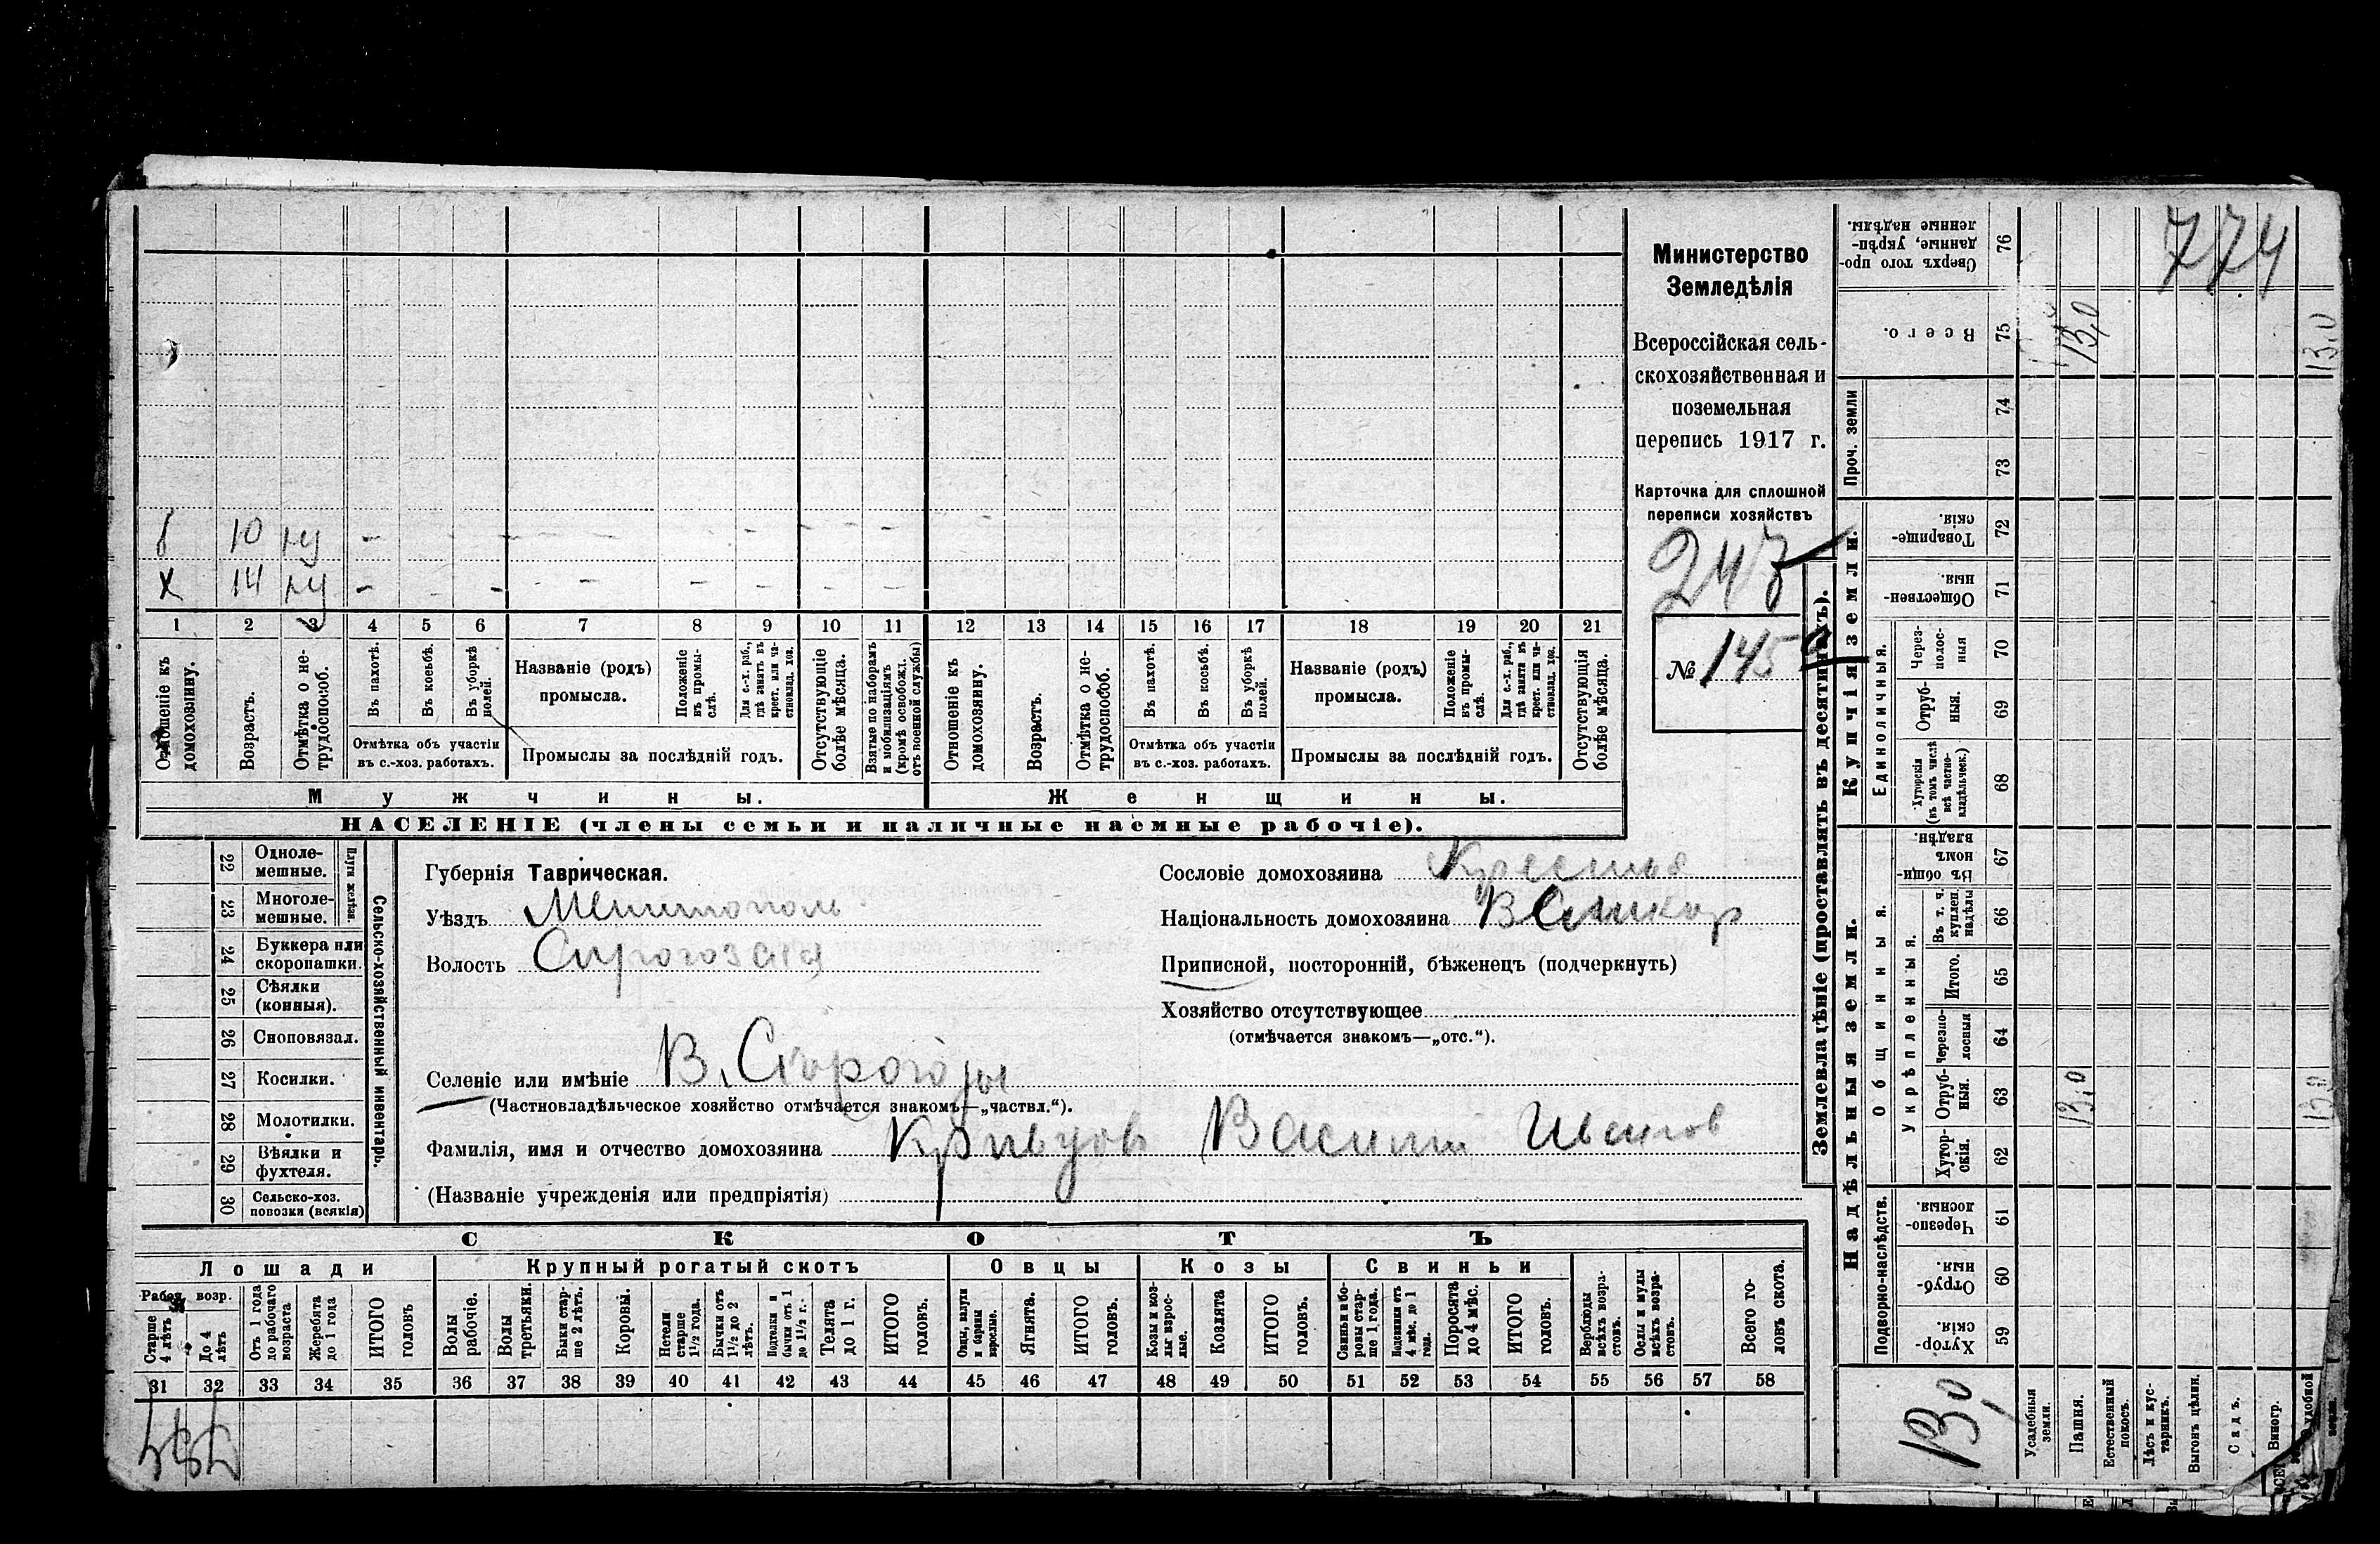 б 10 н
х 14 н
1 2 3 4 5 6 7 8 9 10 11 12 13 14 15 16 17 18 19 20 21
Отношеніе къ домохозяину.
Возрастъ.
Отмѣтка о не-
трудоспособ.
Въ пахотѣ.
Въ косьбѣ.
Въ уборкѣ
полей.
Отмѣтка объ участіи
въ с.-хоз. работахъ.
Названіе (родъ)
промысла.
Положеніе
въ промы-
слѣ.
Для с.-х. раб.,
гдѣ занятъ въ
крест. или ча-
стновлад. хоз.
Промыслы за послѣдній годъ.
Отсутствующіе
болѣе мѣсяца.
Взятые по наборамъ
и мобилизаціямъ
(кромѣ освобожд.
отъ военной службы)
Отношеніе къ
домохозяину.
Возрастъ.
Отмѣтка о не-
трудоспособ.
Въ пахотѣ.
Въ косьбѣ.
Въ уборкѣ
полей.
Отмѣтка объ участіи
въ с.-хоз. работахъ.
Названіе (родъ)
промысла.
Положеніе
въ промы-
слѣ.
Для с.-х. раб.,
гдѣ занята въ
крест. или ча-
стновлад. хоз.
Промыслы за послѣдній годъ.
Отсутствующія
болѣе мѣсяца.
Мужчины. Женщины.
НАСЕЛЕНІЕ (члены семьи и наличные наемные рабочіе).
Министерство
Земледѣлія
Всероссійская сель-
скохозяйственная и
поземельная
перепись 1917 г.
Карточка для сплошной
переписи хозяйствъ
247
№ 145
22 Одноле-
мешные.
23 Многоле-
мешные.
Плуги желѣзн.
24 Буккера или
скоропашки.
25 Сѣялки
(конныя).
26 Сноповязал.
27 Косилки.
28 Молотилки.
29 Вѣялки и
фухтеля.
30 Сельско-хоз.
повозки (всякія)
Сельско-хозяйственный инвентарь.
Губернія Таврическая.
Уѣздъ Мелитополь
Волость Сирогозская
Селеніе или имѣніе В. Сирогозы
(Частновладѣльческое хозяйство отмѣчается знакомъ—„частвл.“).
Фамилія, имя и отчество домохозяина Кривцов Василий Иванов
(Названіе учрежденія или предпріятія)
Сословіе домохозяина
Національность домохозяина
Приписной, посторонній, бѣженецъ (подчеркнуть)
Хозяйство отсутствующее
(отмѣчается знакомъ—„отс.“).
СКОТЪ
Лошади Крупный рогатый скотъ Овцы Козы Свиньи
Рабоч. возр.
Старше
4 лѣтъ
До 4
лѣтъ
Отъ 1 года
до рабочаго
возраста
Жеребята
до 1 года
ИТОГО
головъ
Волы
рабочіе.
Волы
третьяки.
Быки стар-
ше 2 лѣтъ.
Коровы.
Нетели
старше
1½ года.
Бычки отъ
1½ до 2
лѣтъ.
Подтелки и
бычки отъ 1
до 1½ г.
Телята
до 1 г.
ИТОГО
головъ.
Овцы, валухи
и бараны
взрослые.
Ягнята.
ИТОГО
головъ.
Козы и коз-
лы взрос-
лые.
Козлята
ИТОГО
головъ.
Свиньи и бо-
ровы стар-
ше 1 года.
Подсвинки отъ
4 мѣс. до 1
года.
Поросята
до 4 мѣс.
ИТОГО
головъ.
Верблюды
всѣхъ возра-
стовъ.
Ослы и мулы
всѣхъ возра-
стовъ.
Всего го-
ловъ скота.
31 32 33 34 35 36 37 38 39 40 41 42 43 44 45 46 47 48 49 50 51 52 53 54 55 56 57 58
Землевладѣніе (проставлять въ десятинахъ).
Сверхъ того про-
данные, укрѣп-
ленные надѣлы.
76
774
Всего.
75
13,0
13,0
Проч. земли
74
73
Купчія земли.
Товарище-
скія.
72
Обществен-
ныя.
71
Единоличныя.
Через-
полос-
ныя
70
Отруб-
ныя.
69
Хуторскія
(въ томъ числѣ
всѣ частно-
владѣльческ.)
68
Надѣльныя земли.
Общинныя.
Въ общи-
номъ
владѣн.
67
Укрѣпленныя.
Въ т. ч.
куплен.
надѣлы
66
Итого.
65
Черезпо-
лосныя
64
Отруб-
ныя.
63
13,0
13,0
Хутор-
скія.
62
Подворно-наслѣдств.
Черезпо-
лосныя.
61
Отруб-
ныя.
60
Хутор-
скія.
59
13,0
Усадебныя
земли.
Пашня.
Естественный
покосъ.
Лѣсъ и кус-
тарникъ.
Выгонъ цѣлин.
Садъ.
Виногр.
удобной